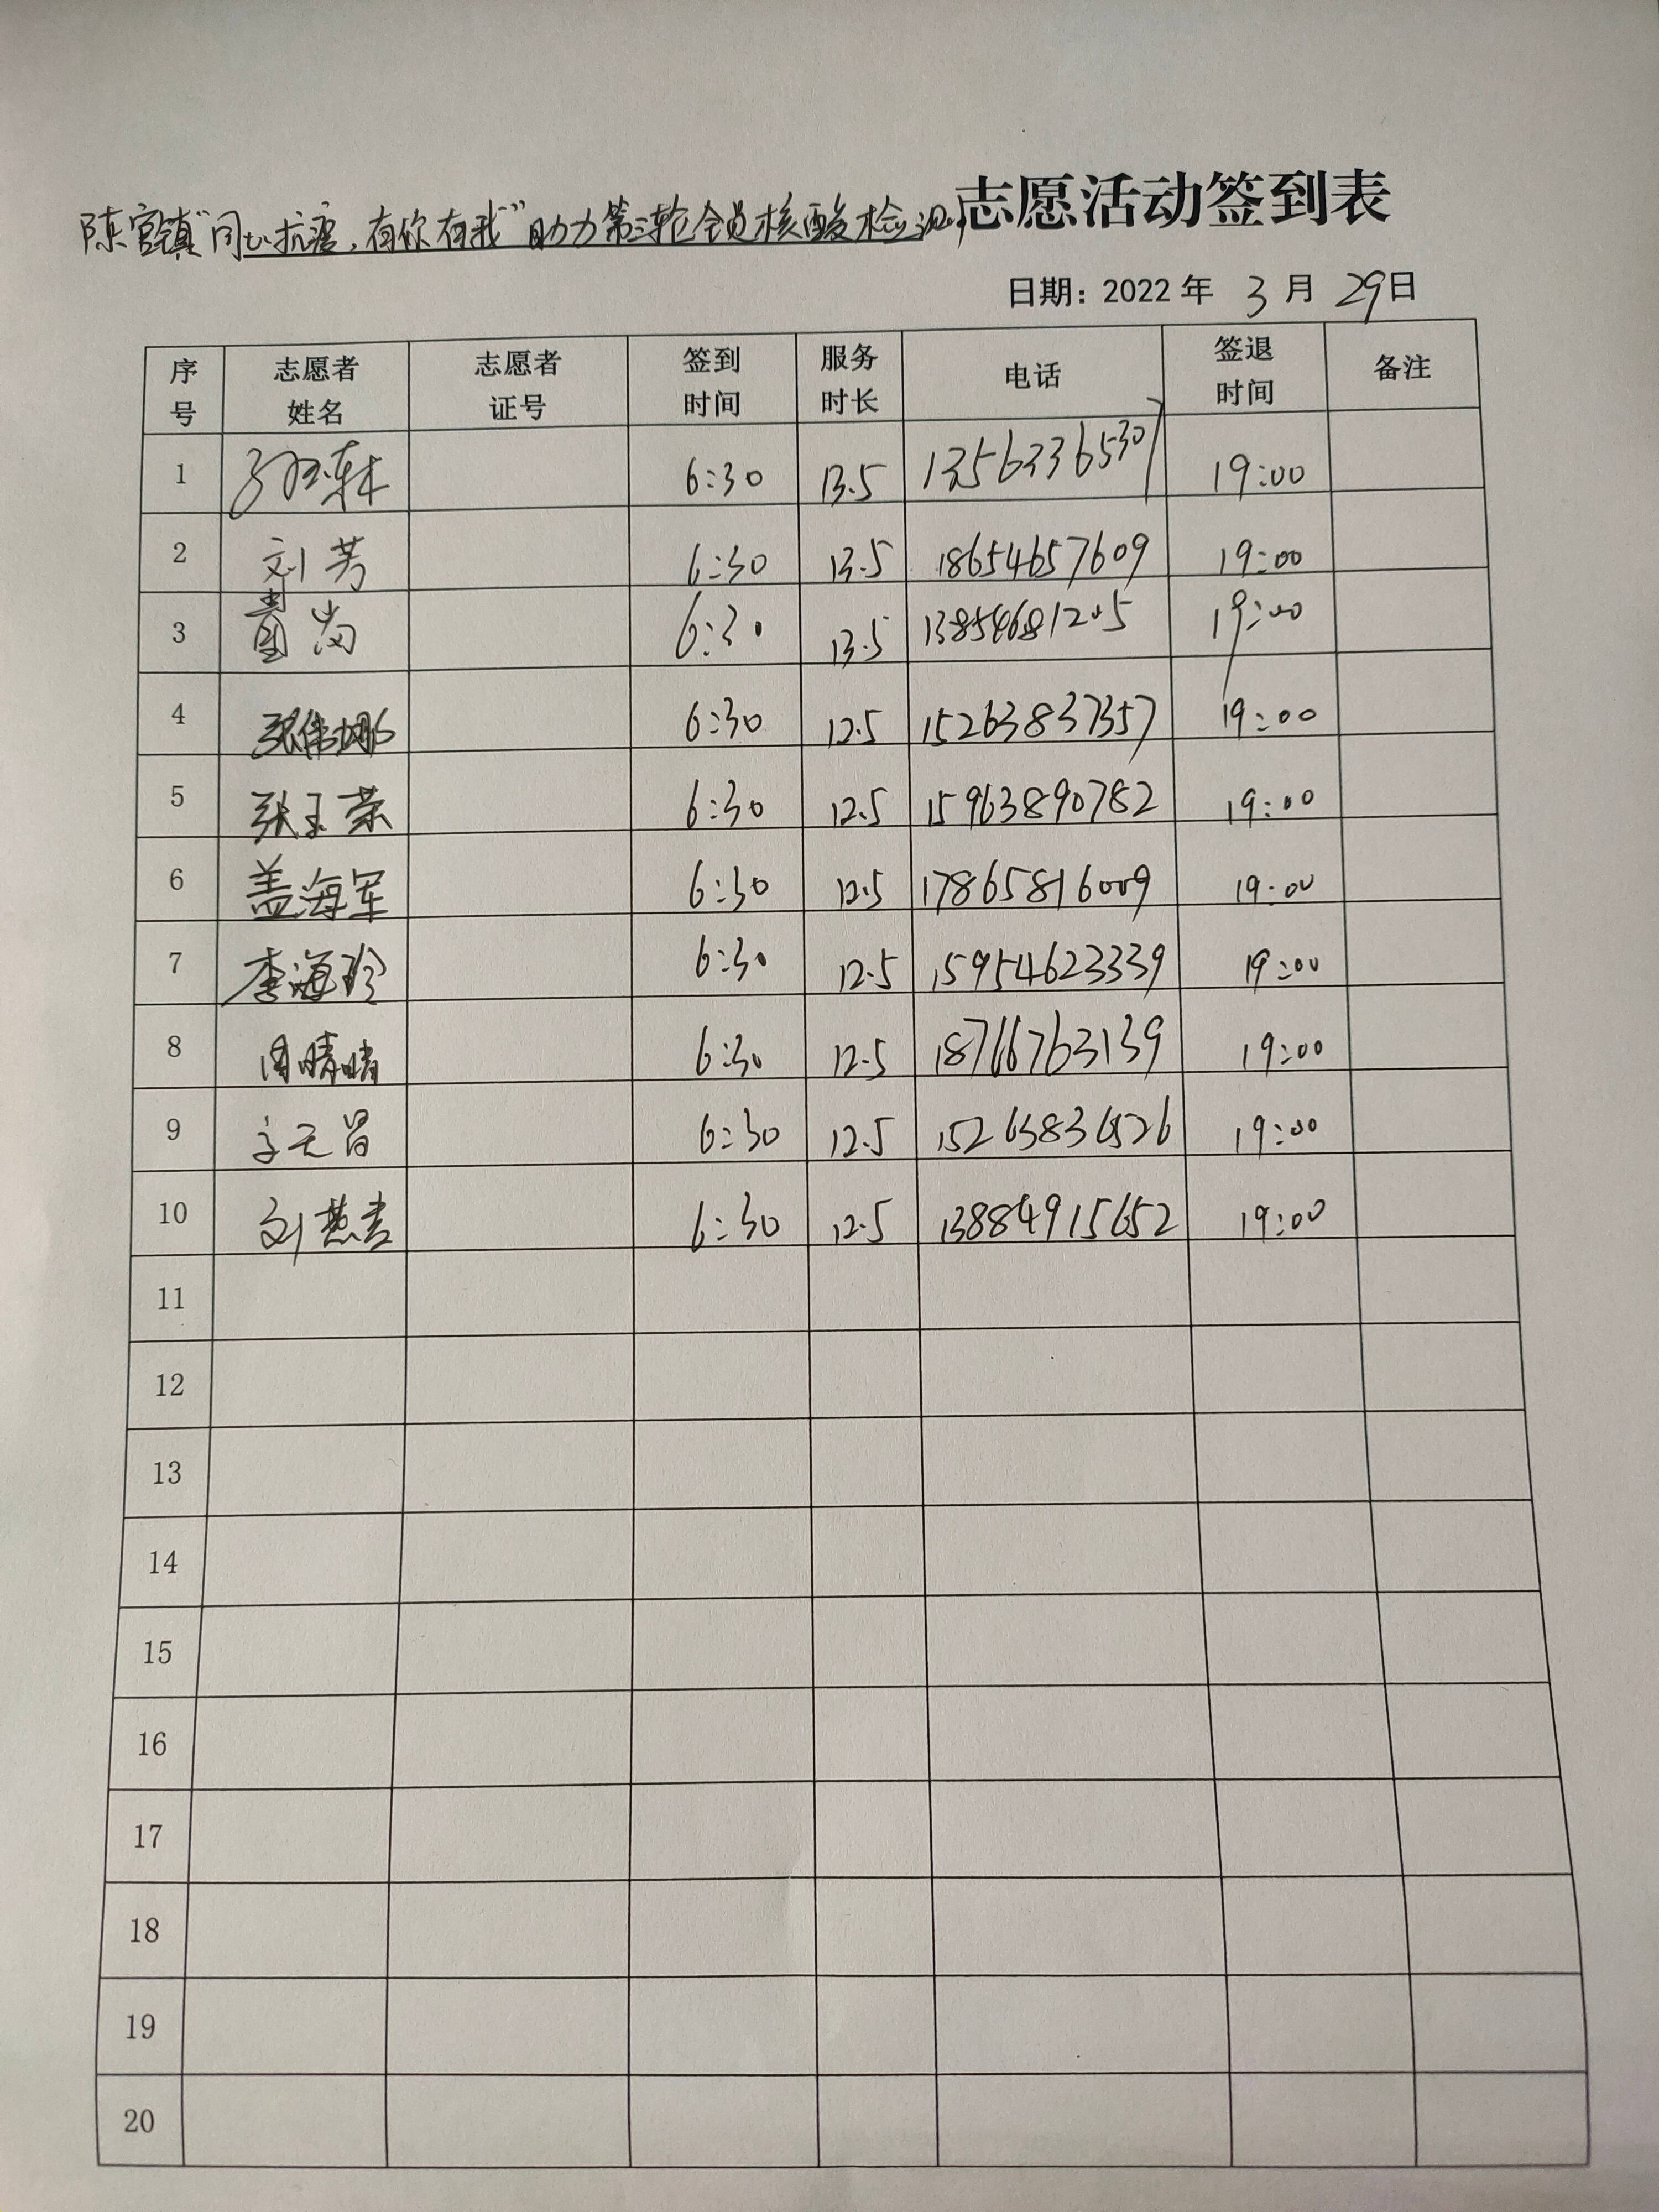 志愿活动签到表
陈官镇“同心抗疫,有你有我”助力第三轮全员核酸检测
日期: 2022 年 3 月 29日
序号 志愿者姓名 志愿者证号 签到时间 服务时长 电话 签退时间 备注
1 6:30 13.5 19:00
2 刘芳 6:30 13.5 18654657609 19:00
3 6:30 13.5 13854681205 19:00
4 张伟娜 6:30 12.5 15263837357 19:00
5 张玉荣 6:30 12.5 15963890782 19:00
6 盖海军 6:30 12.5 17865816009 19:00
7 李海玲 6:30 12.5 15954623339 19:00
8 周晴晴 6:30 12.5 18766763139 19:00
9 6:30 12.5 15263836526 19:00
10 刘燕青 6:30 12.5 13884915652 19:00
11
12
13
14
15
16
17
18
19
20